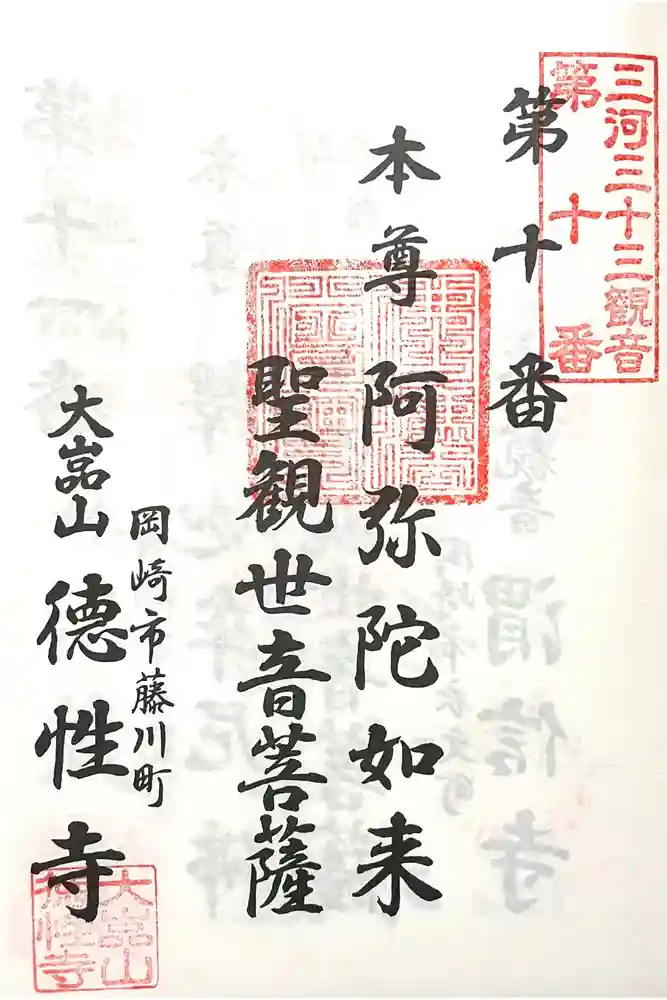 三河三十三觀音
第十番
第十番
本尊 阿弥陀如来
聖観世音菩薩
岡崎市藤川町
大嵓山 德性寺
大嵓山
德性寺